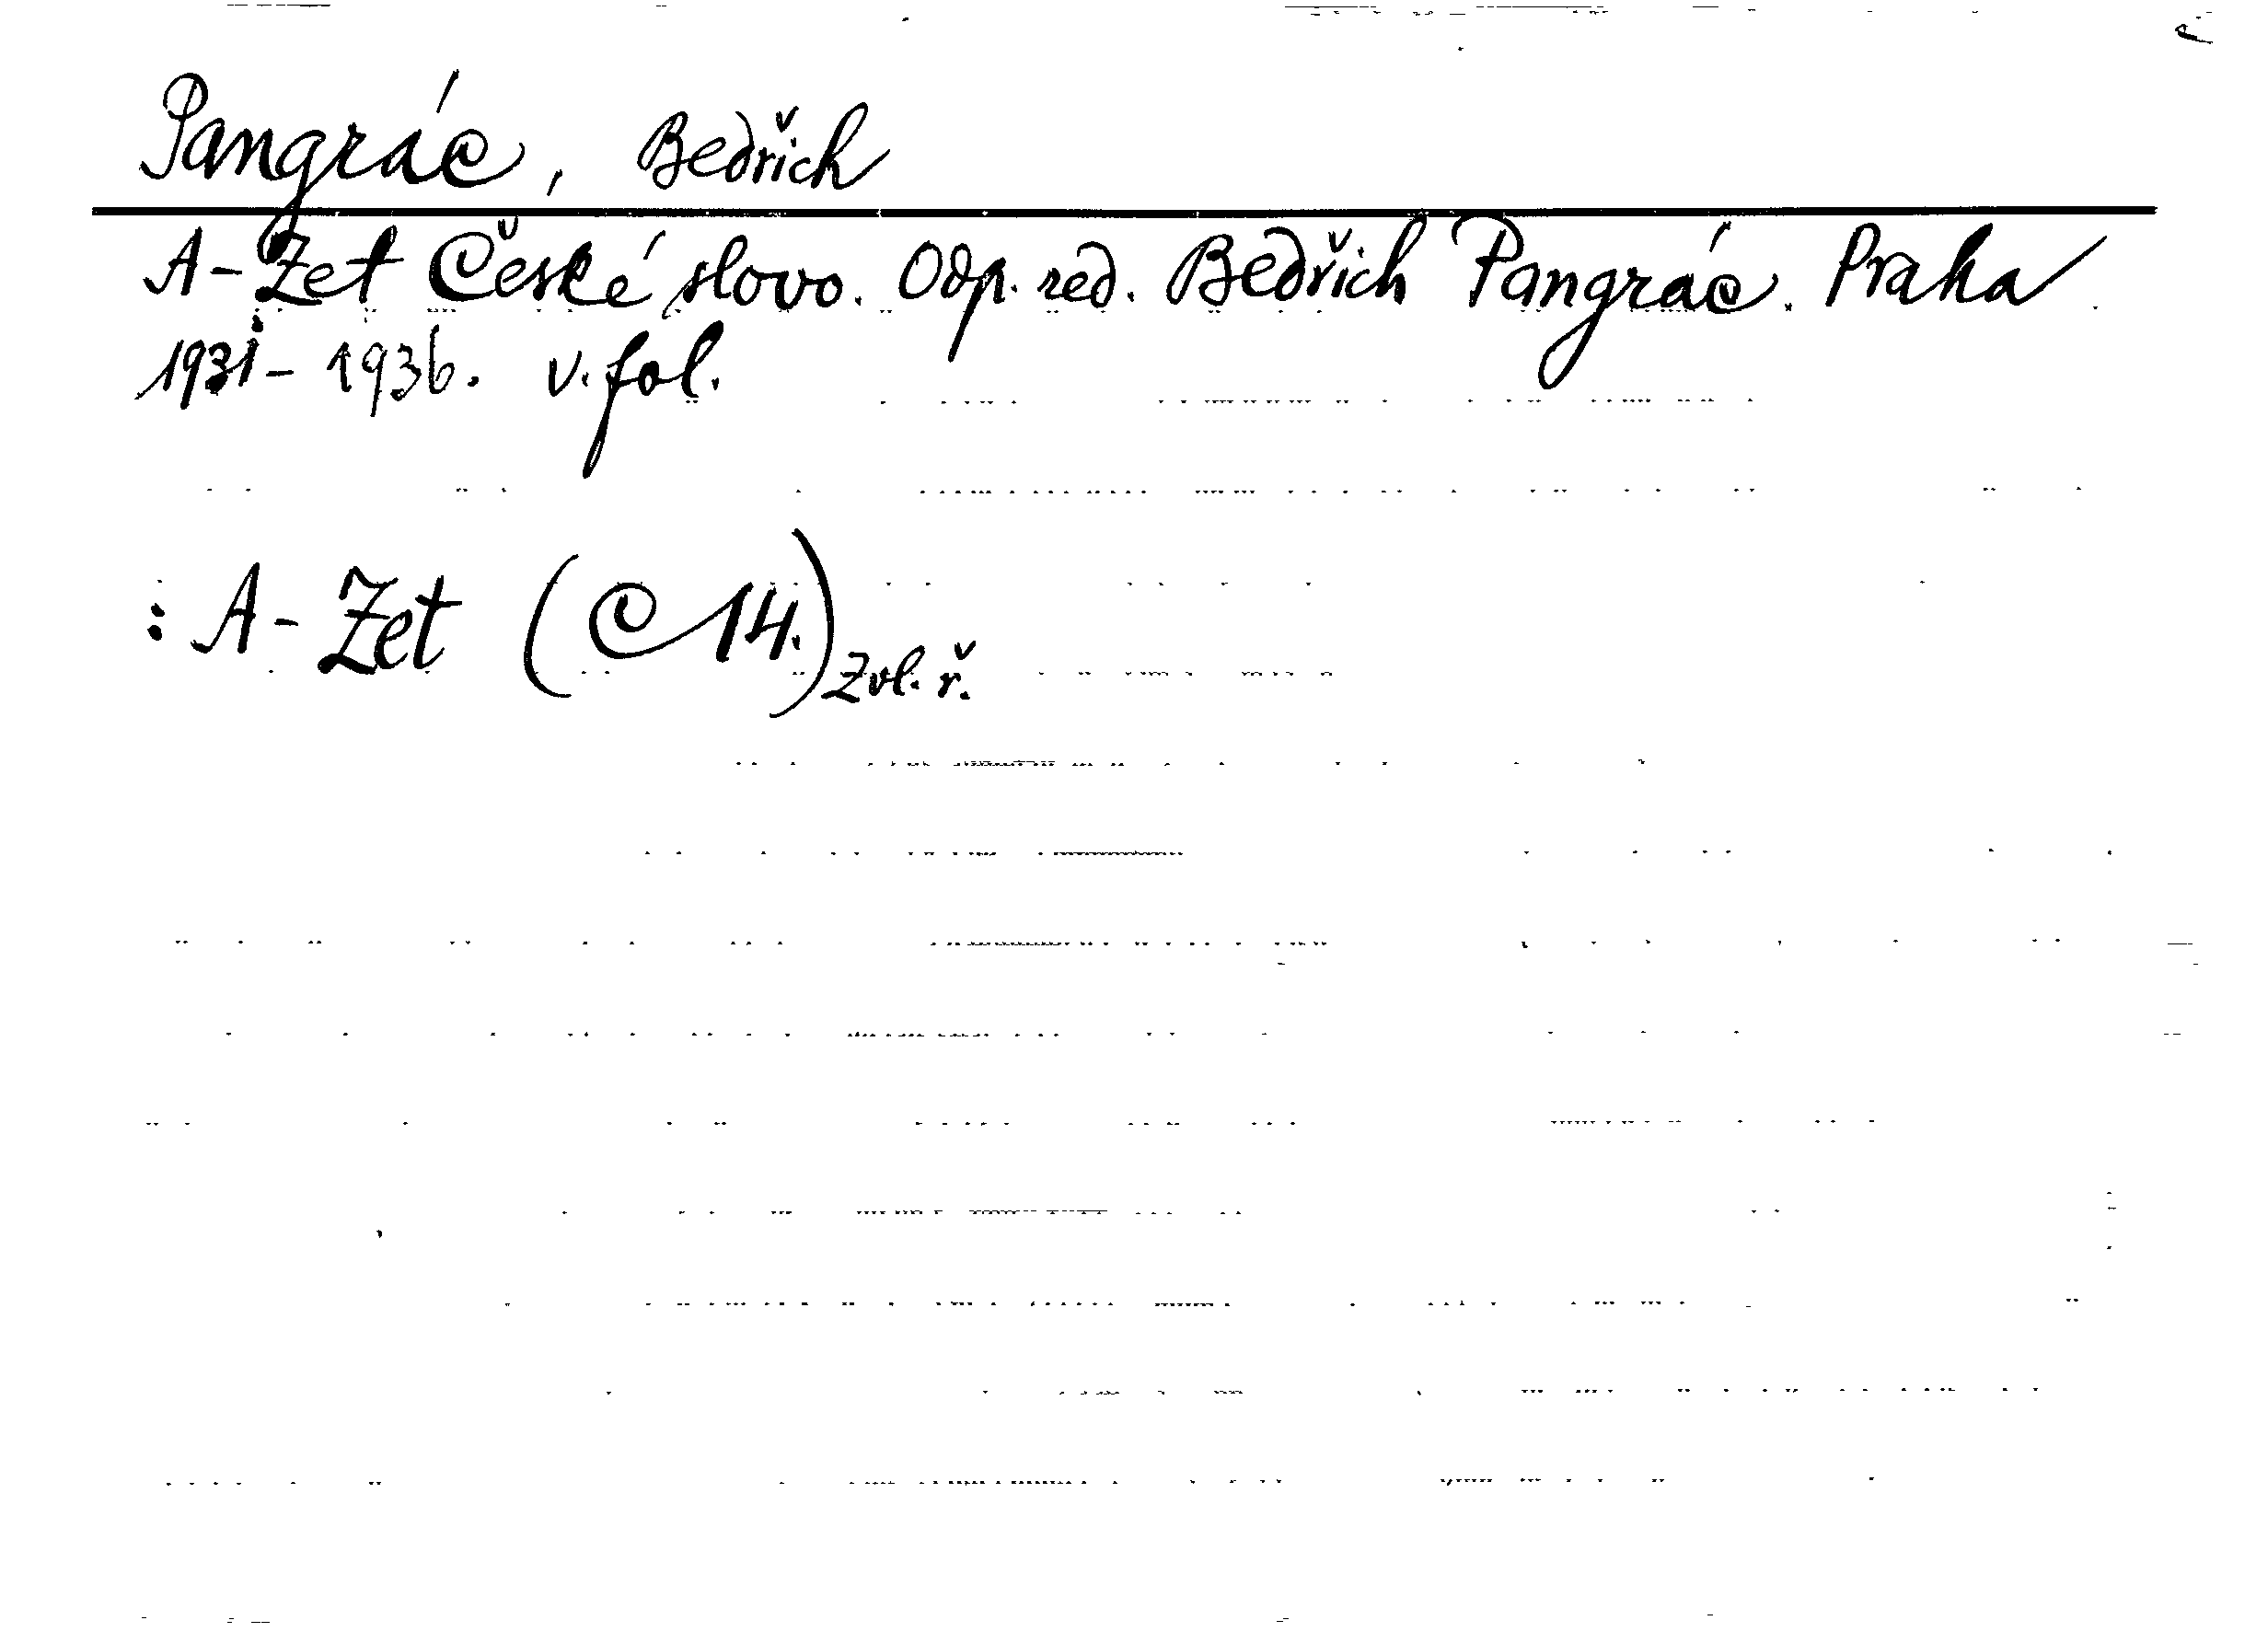 Pangrác, Bedřich
A-Zet České slovo. Odp. red. Bedřich Pangrác. Praha
1931-1936. v. fol.
: A-Zet (C 14.) Zvl. ř.